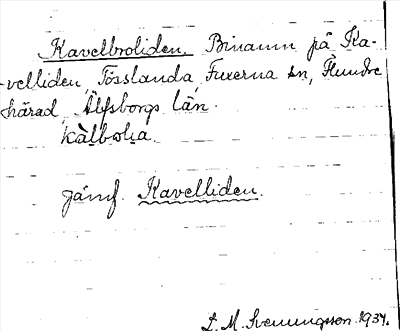 Kavelbroliden. Binamn på Ka-
velliden, Tösslanda, Fuxerna sn, Flundre
härad, Älfsborgs län.
kàlbroḷia.
Jämf. Kavelliden.
L. M. Svenungsson. 1934.